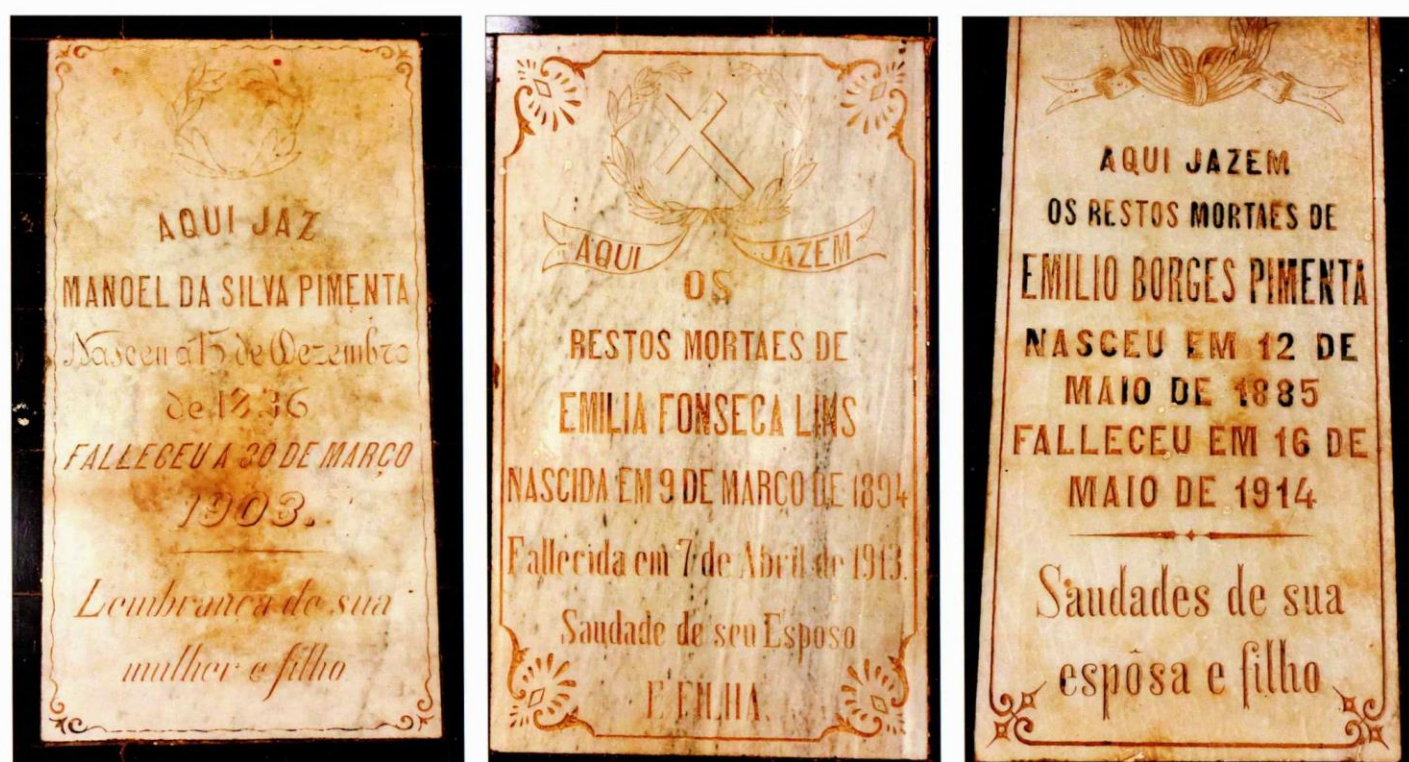 AQUI JAZ
MANOEL DA SILVA PIMENTA
Nasceu a 15 de Dezembro
de 1836
FALLECEU A 30 DE MARÇO
1903.
Lembrança de sua
mulher e filho
AQUI JAZEM
OS
RESTOS MORTAES DE
EMILIA FONSECA LINS
NASCIDA EM 9 DE MARÇO DE 1894
Fallecida em 7 de Abril de 1913.
Saudade de seu Esposo
E FILHA.
AQUI JAZEM
OS RESTOS MORTAES DE
EMILIO BORGES PIMENTA
NASCEU EM 12 DE
MAIO DE 1885
FALLECEU EM 16 DE
MAIO DE 1914
Saudades de sua
espôsa e filho